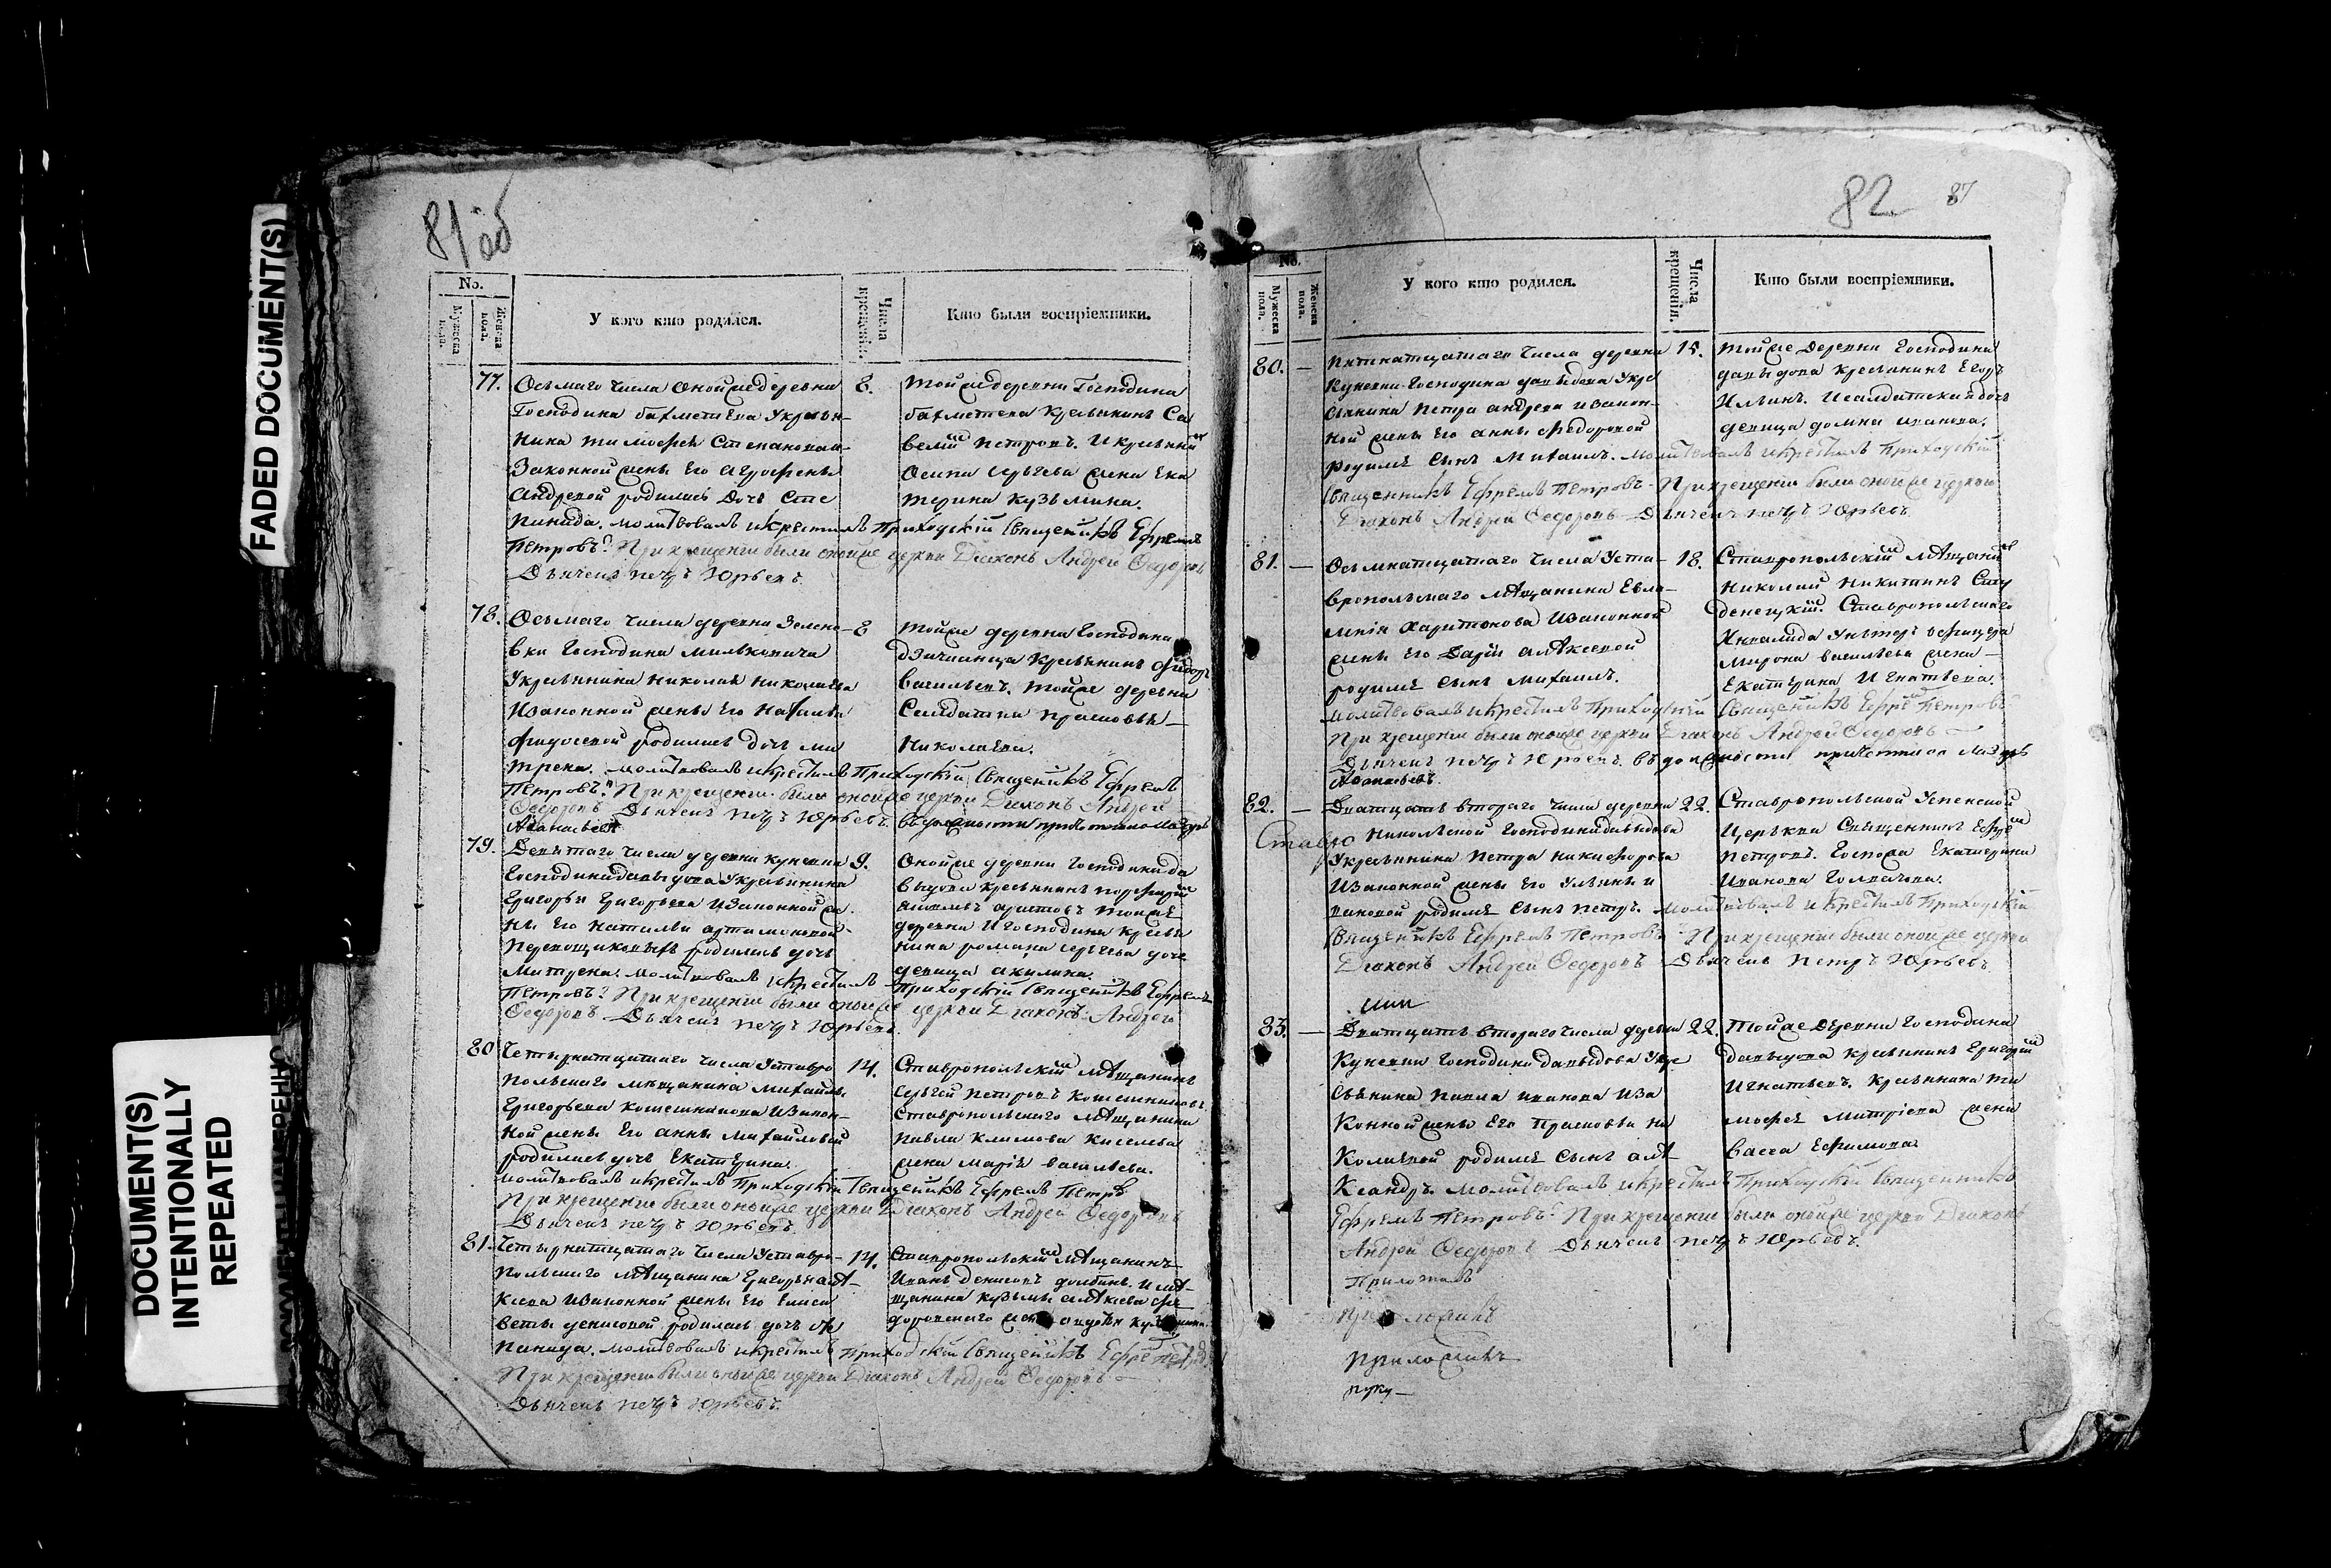 FADED DOCUMENT(S)
DOCUMENT(S)
INTENTIONALLY
REPEATED
81 об
No.
Мужеска пола.
Женска пола.
У кого кто родился.
Числа крещенія.
Кто были воспріемники.
77.
Осьмаго числа оной же деревни
Господина бахметева Укрестья-
нина тимофея Степанова и
Законной жены его Агрофены
Андреевой родилась дочь Сте
панида. молитвовалъ и крестилъ Приходскій Священникъ Ефремъ
Петровъ. При крещеніи были оной же церкви Діаконъ Андрей Федоровъ
Дьячекъ петръ Юрьевъ.
8.
той же деревни Господина
бахметева Крестьянинъ Са
велій петровъ. И крестьянина
Осипа Сергеева жена Ека
терина Кузьмина.
78.
Осьмаго числа деревни Зелено-
вки Господина мильковича
Укрестьянина николая николаева
Изаконной жены его Натальи
федосеевой родилась дочь ма
трена. молитвовалъ и крестилъ Приходскій Священикъ Ефремъ
Петровъ. При крещеніи были оной же церкви Діаконъ Андрей
Федоровъ Дьячекъ петръ Юрьевъ. въ должности
Афанасьевъ
8
той же деревни Господина
Крестьянинъ
васильевъ. той же деревни
Салдатка прасковья
Николаева.
79.
Девятаго числа деревни кунеевки
Господина давыдова Укрестьянина
Григорья Григорьева Изаконной же-
ны его натальи артамоновой
родилась дочь
Матрена. молитвовалъ и крестилъ Приходскій Священикъ Ефремъ
Петровъ. При крещеніи были оной же церкви Діаконъ Андрей
Федоровъ Дьячекъ петръ Юрьевъ.
9.
Оной же деревни Господина да
выдова крестьянинъ
той же
деревни И господина крестья
нина романа сергеева дочь
девица акулина.
80
Четырнатцатаго числа Уставро
польскаго мѣщанина Михайлы
Григорьева Изакон-
ной жены его анны михайловой
родилась дочь Екатерина.
молитвовалъ и крестилъ Приходскій Священикъ Ефремъ Петровъ
При крещеніи были оной же церкви Діаконъ Андрей Федоровъ
Дьячекъ петръ Юрьевъ.
14.
Ставропольскій мѣщанинъ
Сергей петровъ
Ставропольскаго мѣщанина
павла климова киселева
жена марія васильева.
81.
Четырнатцатаго числа Уставро-
польскаго мѣщанина Григорья алѣ-
ксева Изаконной жены его Елиса
веты денисовой родилась дочь сте
панида. молитвовалъ и крестилъ приходскій Священикъ Ефремъ
При крещеніи были оной же церкви Діаконъ Андрей Федоровъ
Дьячекъ петръ Юрьевъ.
14.
Ставропольскій мѣщанинъ
Иванъ денисовъ И мѣ-
щанина кузьмы алѣксева
82
87
No.
Мужеска пола.
Женска пола.
У кого кто родился.
Числа крещенія.
Кто были воспріемники.
80.
—
Пятнатцатаго числа деревни
Кунеевки Господина давыдова Укре
стьянина петра андреева изакон-
ной жены его анны федоровой
родился сынъ Михаилъ. молитвовалъ и крестилъ Приходскій
Священникъ Ефремъ Петровъ. При крещеніи были оной же церкви
Діаконъ Андрей Федоровъ Дьячекъ петръ Юрьевъ.
15.
той же деревни Господина
давыдова крестьянинъ Егоръ
Ильинъ. Исалдатская дочь
девица домна иванова.
81.
—
Осьмнатцатаго числа Уста-
вропольскаго мѣщанина Евла-
мпія харитонова Изаконной
жены его Дарьи алѣксевой
родился сынъ михаилъ.
молитвовалъ и крестилъ Приходскій Священикъ Ефремъ Петровъ
При крещеніи были оной же церкви Діаконъ Андрей Федоровъ
Дьячекъ петръ Юрьевъ. въ должности
Афанасьевъ.
18.
Ставропольскій мѣщанинъ
николай никитинъ Сту
денецкій. Ставропольскаго
Инвалида Унтеръ офицера
Мирона васильева жена
Екатерина Игнатьева.
82.
—
Ставро
Дватцать втораго числа деревни
никольской Господина давыдова
Укрестьянина петра никифорова
Изаконной жены его Ульяны и
вановой родился сынъ петръ. молитвовалъ и крестилъ Приходскій
Священикъ Ефремъ Петровъ При крещеніи были оной же церкви
Діаконъ Андрей Федоровъ Дьячекъ петръ Юрьевъ.
22.
Ставропольской Успенской
Церькви Священникъ Ефремъ
петровъ. Госпожа Екатерина
Иванова
83.
—
Дватцать втораго числа деревни
Кунеевки Господина давыдова Укре
стьянина павла иванова Иза
конной жены его Прасковьи ни
колаевой родился сынъ алѣ
ксандръ. молитвовалъ и крестилъ Приходскій Священникъ
Ефремъ Петровъ. При крещеніи были оной же церкви Діаконъ
Андрей Федоровъ Дьячекъ петръ Юрьевъ.
22.
Той же деревни Господина
давыдова крестьянинъ Григорій
Игнатьевъ. крестьянина ти
мофея митріева жена
васса Ефимова
приложилъ
руку